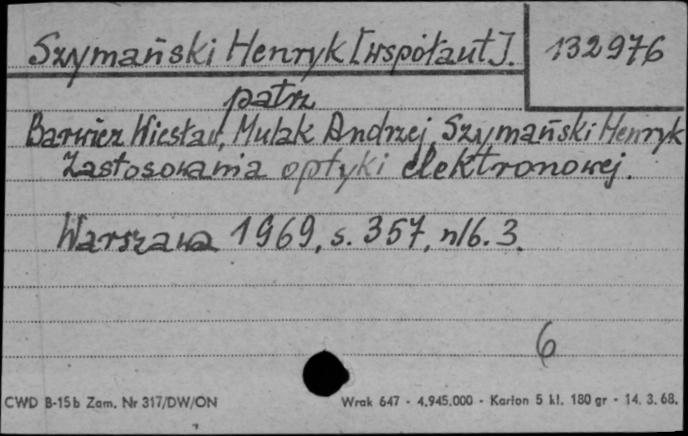 Szymański Henryk [współaut].
132976
patrz
Barwicz Wiesław, Mulak Andrzej, Szymański Henryk
Zastosowania optyki elektronowej.
Warszawa 1969, s. 357, nlb. 3.
6
CWD B-15b Zam. Nr 317/DW/ON
Wrak 647 - 4.945.000 - Karton 5 kl. 180 gr - 14. 3. 68.